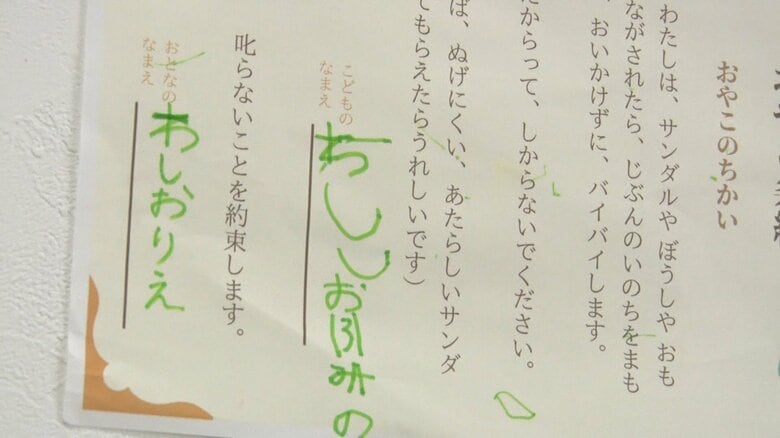 おやこのちかい
わたしは、サンダルや ぼうしや おも
ながされたら、じぶんのいのちをまも
、おいかけずに、バイバイします。
たからって、しからないでください。
ば、ぬげにくい、あたらしいサンダ
てもらえたらうれしいです）
こどもの
なまえ
わしおふみの
叱らないことを約束します。
おとなの
なまえ
わしおりえ